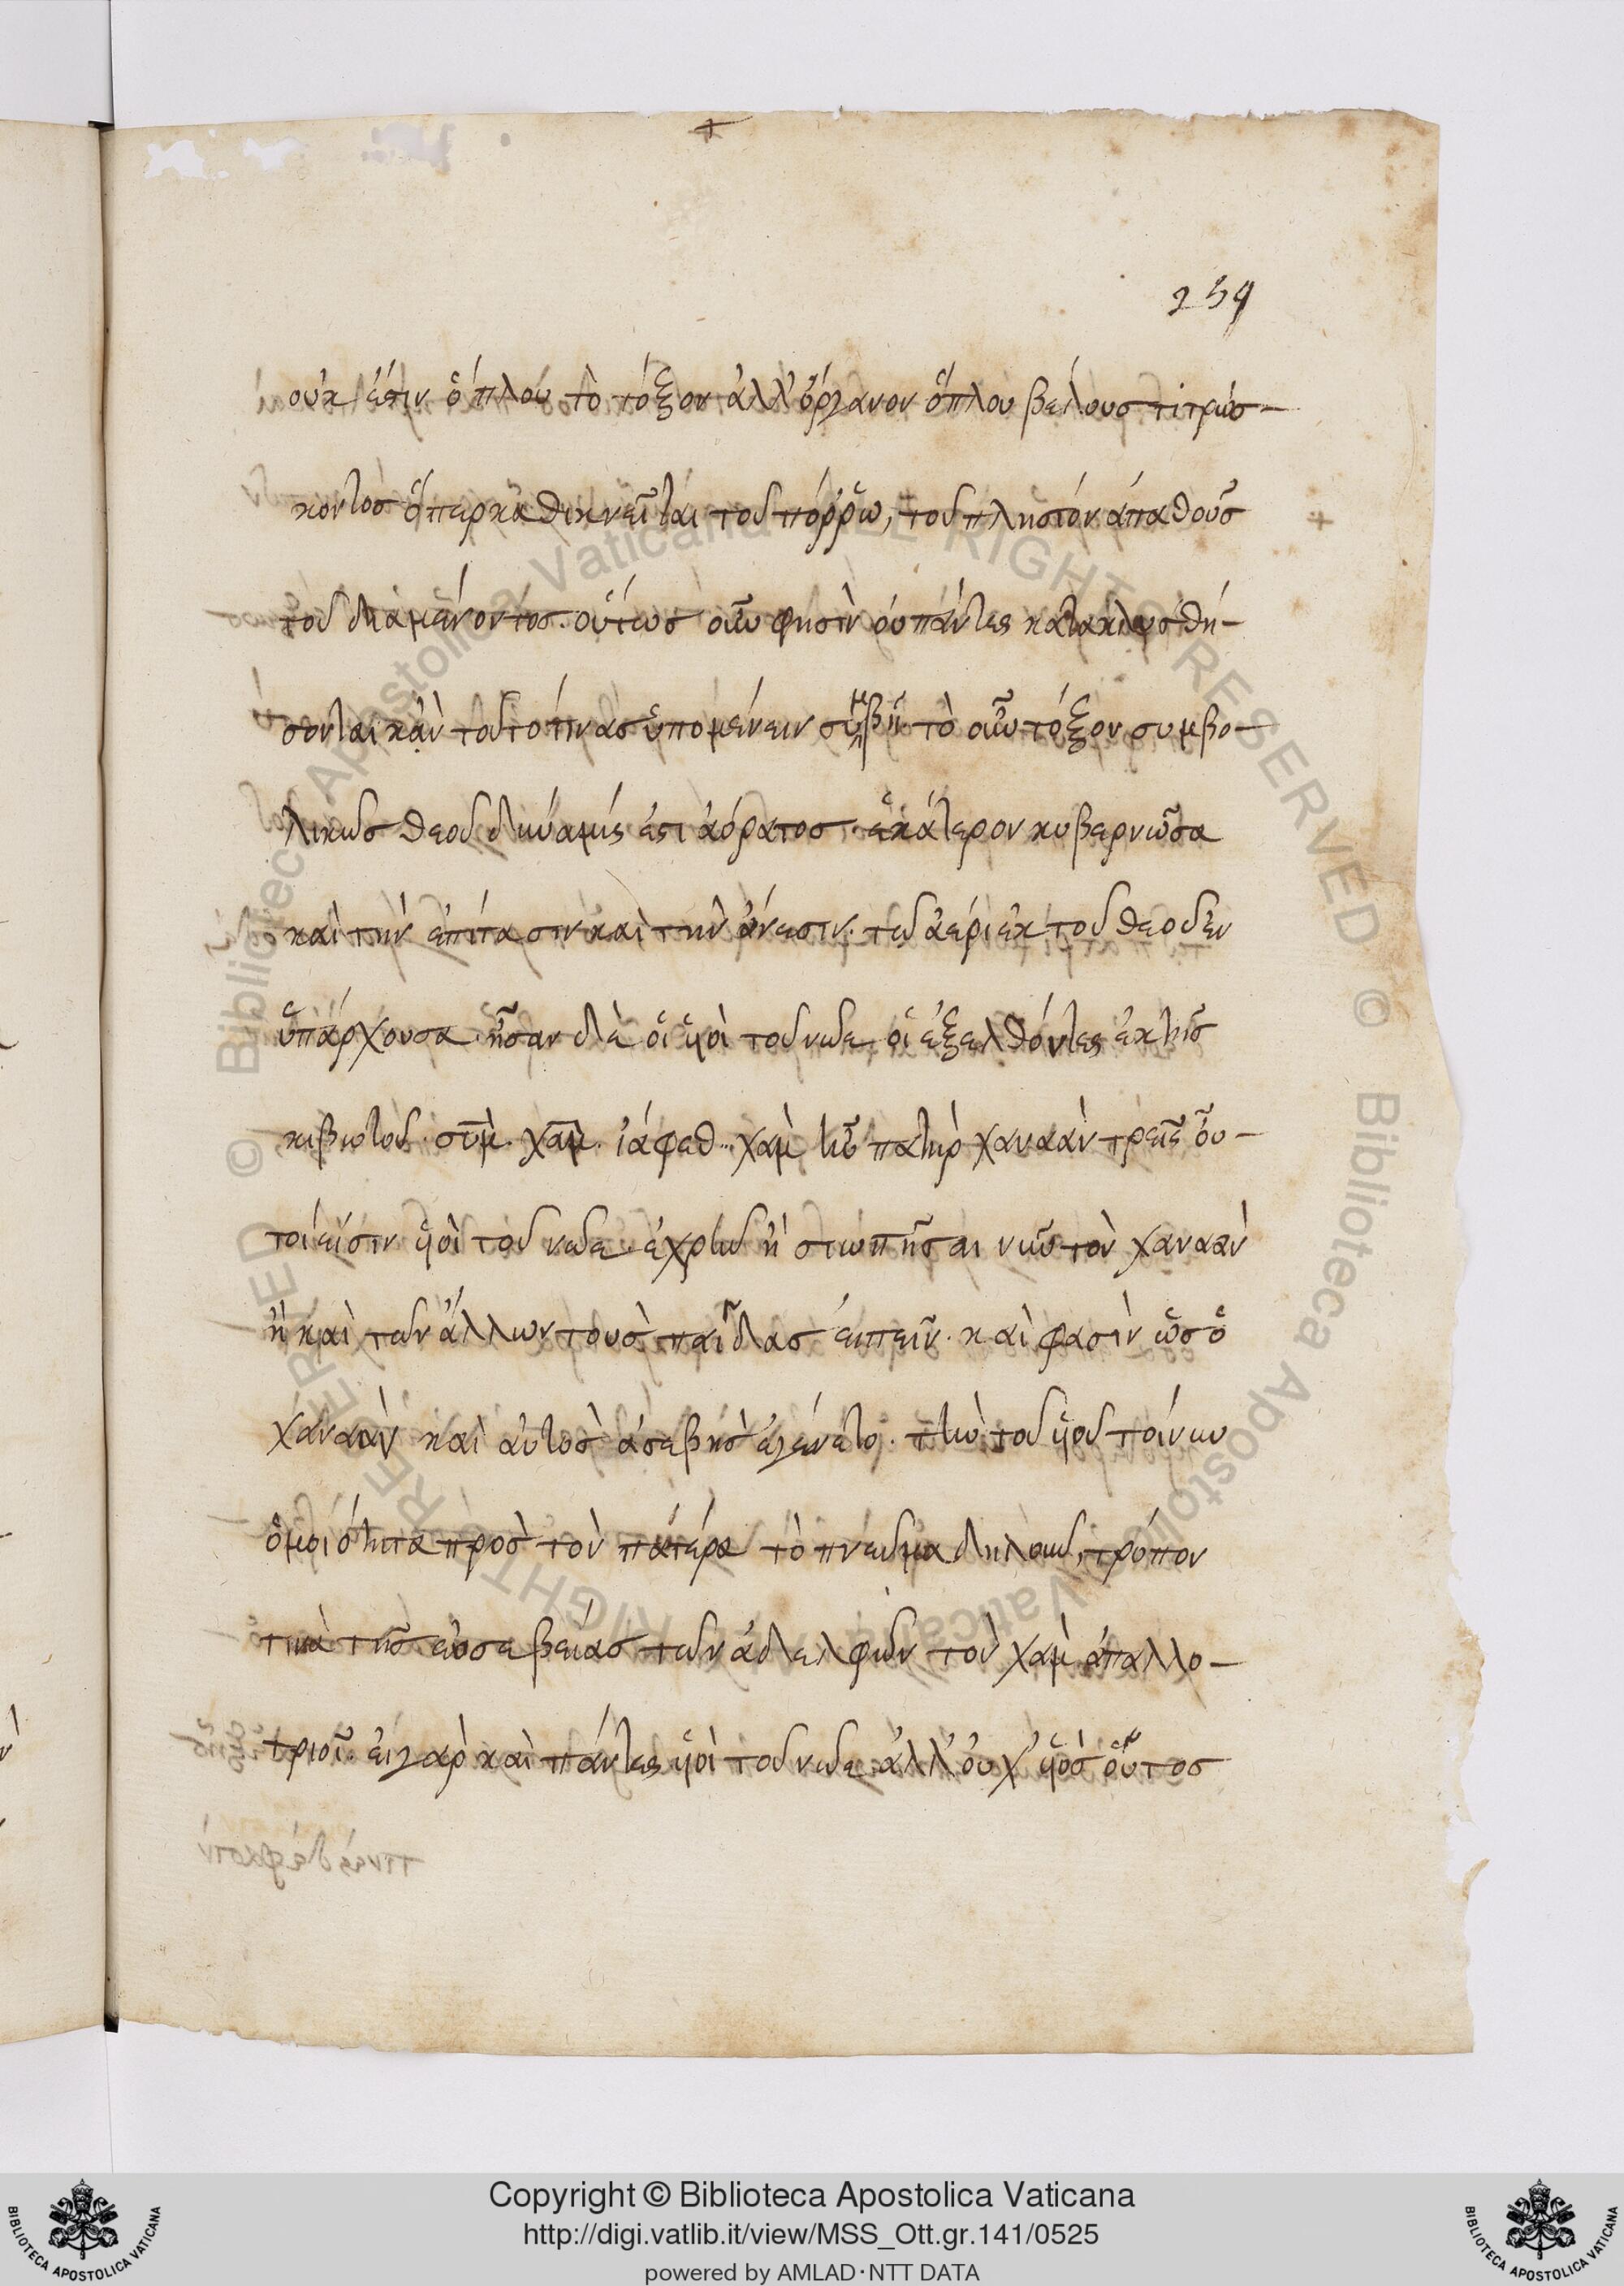 259
οὐκ έστιν ὅπλου τὸ τόξον ἀλλ' ὄργανον ὅπλου βέλους τιτρώσ-
κοντος ὅπερ καθικνεῖται τοῦ πόρρω, τοῦ πλησίον ἀπαθοῦς
τοῦ διαμένοντος. οὕτως οὖν φησὶν οὐ πάντες κατακλυσθή-
σονται κἂν τοῦτο τινας ὑπομένειν συμβῇ. τὸ οὖν τόξον συμβο-
λικῶς θεοῦ δύναμίς ἐστι ἀόρατος. ἑκάτερον κυβερνῶσα
καὶ τὴν ἐπίτασιν καὶ τὴν ἄνεσιν. τῶ ἀέρι ἐκ τοῦ θεοῦ ἐν
ὑπάρχουσα. ἦσαν δὲ οἱ υἱοὶ τοῦ νῶε οἱ ἐξελθόντες ἐκ τῆς
κιβωτοῦ. σὴμ. χὰμ. ἰάφεθ. χὰμ ἦν πατὴρ χαναὰν τρεῖς οὗ-
τοί εἰσιν υἱοὶ τοῦ νῶε. ἐχρῆν ἢ σιωπῆσαι νῦν τὸν χαναὰν
ἢ καὶ τῶν ἄλλων τοὺς παῖδας εἰπεῖν. καὶ φασὶν ὡς ὁ
χαναὰν καὶ αὐτὸς ἀσεβὴς ἐγένετο. τὴν τοῦ υἱοῦ τοίνυν
ὁμοιότητα πρὸς τὸν πατέρα τὸ πνεῦμα δηλοῦν, τρόπον
τινὰ τῆς εὐσεβείας τῶν ἀδελφῶν τὸν χὰμ ἀπαλλο-
τριοῖ. εἰ γὰρ καὶ πάντες υἱοὶ τοῦ νῶε ἀλλ' οὐχ' υἱὸς οὗτος
Copyright © Biblioteca Apostolica Vaticana
http://digi.vatlib.it/view/MSS_Ott.gr.141/0525
powered by AMLAD·NTT DATA